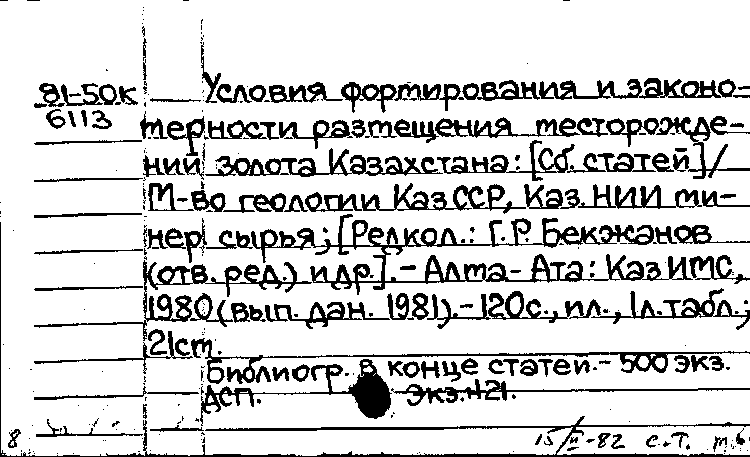 81-50к
6113
Условия формирования и законо-
мерности размещения месторожде-
ний золота Казахстана: [Сб. статей]/
М-во геологии КазССР, Каз. НИИ ми-
нер сырья; [Редкол.: Г.Р. Бекжанов
(отв. ред.) и др.]. - Алма-Ата: КазИМС,
1980 (вып. дан. 1981). - 120с., ил., 1л. табл.;
21см.
Библиогр. в конце статей. - 500 экз.
ДСП. Экз. н21.
8 15/II-82 с.т.